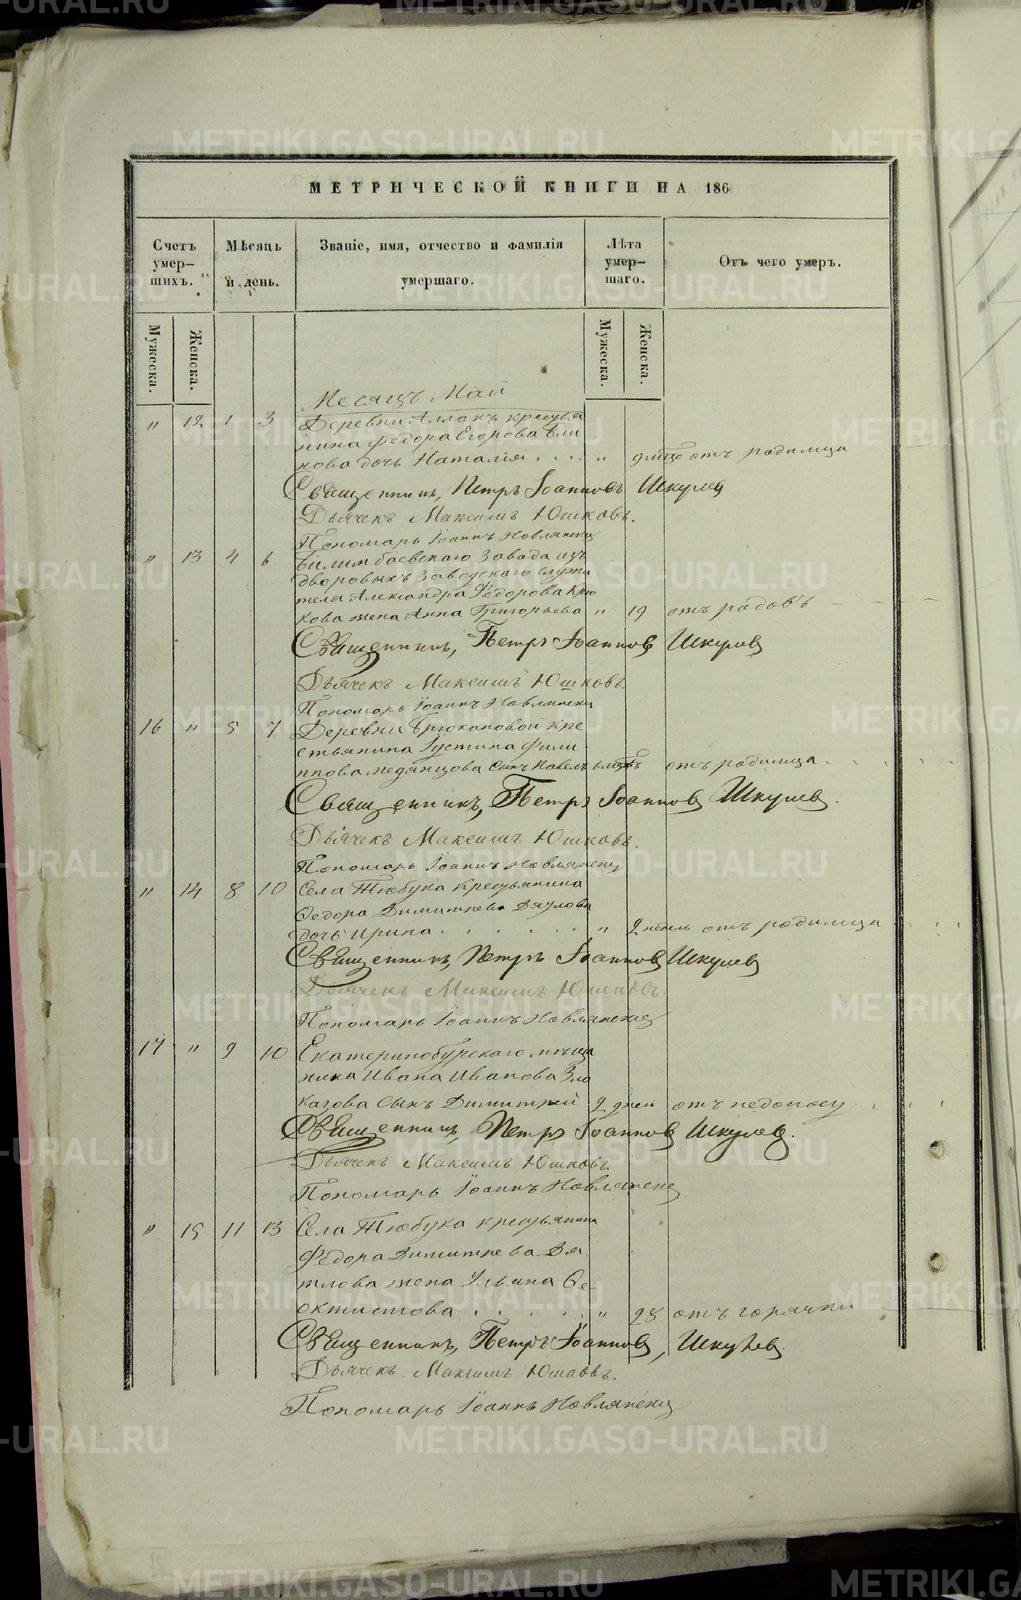 МЕТРИЧЕСКОЙ КНИГИ НА 186
Счетъ умер-шихъ.
Мѣсяцъ и день.
Званіе, имя, отчество и фамилія умершаго.
Лѣта умер-шаго.
Отъ чего умеръ.
Мужеска. Женска. Мужеска. Женска.
Месяцъ Май
" 12 1 3 Деревни Аллакъ крестья
нина Федора Егорова
дочь Наталія . . . . " отъ родимца
Священникъ, Петръ Іоанновъ Шкулев
Дьячекъ Максимъ Юшковъ.
Пономарь Іоаннъ Новлянскій
" 13 4 6 Билимбаевскаго Завода изъ
дворовыхъ Заводскаго служи
теля Александра Федорова Крю
кова жена Анна Григорьева " 19 отъ родовъ
Священникъ, Петръ Іоаннов Шкулев
Дьячекъ Максимъ Юшковъ.
Пономарь Іоаннъ Новлянскій
16 " 5 7 Деревни Брюхановой кре
стьянина Іустина Фили
ппова Медянцова сынъ Павелъ отъ родимца.
Священникъ, Петръ Іоаннов Шкулев.
Дьячекъ Максимъ Юшковъ.
Пономарь Іоаннъ Новлянскій
" 14 8 10 Села Тюбука крестьянина
Федора Димитріева
дочь Ирина . . . . . . " 2 недель отъ родимца
Священникъ, Петръ Іоаннов Шкулев
Дьячекъ Максимъ Юшковъ.
Пономарь Іоаннъ Новлянскій
17 " 9 10 Екатеринбургскаго мѣща
нина Ивана Иванова Зло
казова сынъ Димитрій 2 дней отъ недоносу
Священникъ, Петръ Іоаннов Шкулев.
Дьячекъ Максимъ Юшковъ.
Пономарь Іоаннъ Новлянскій
" 15 11 13 Села Тюбука крестьянина
Федора Димитріева Дя
тлова жена Ульяна Ѳе
октистова . . . . . " 28 отъ горячки
Священникъ, Петръ Іоаннов, Шкулев.
Дьячекъ Максимъ Юшковъ.
Пономарь Іоаннъ Новлянскій
METRIKI.GASO-URAL.RU